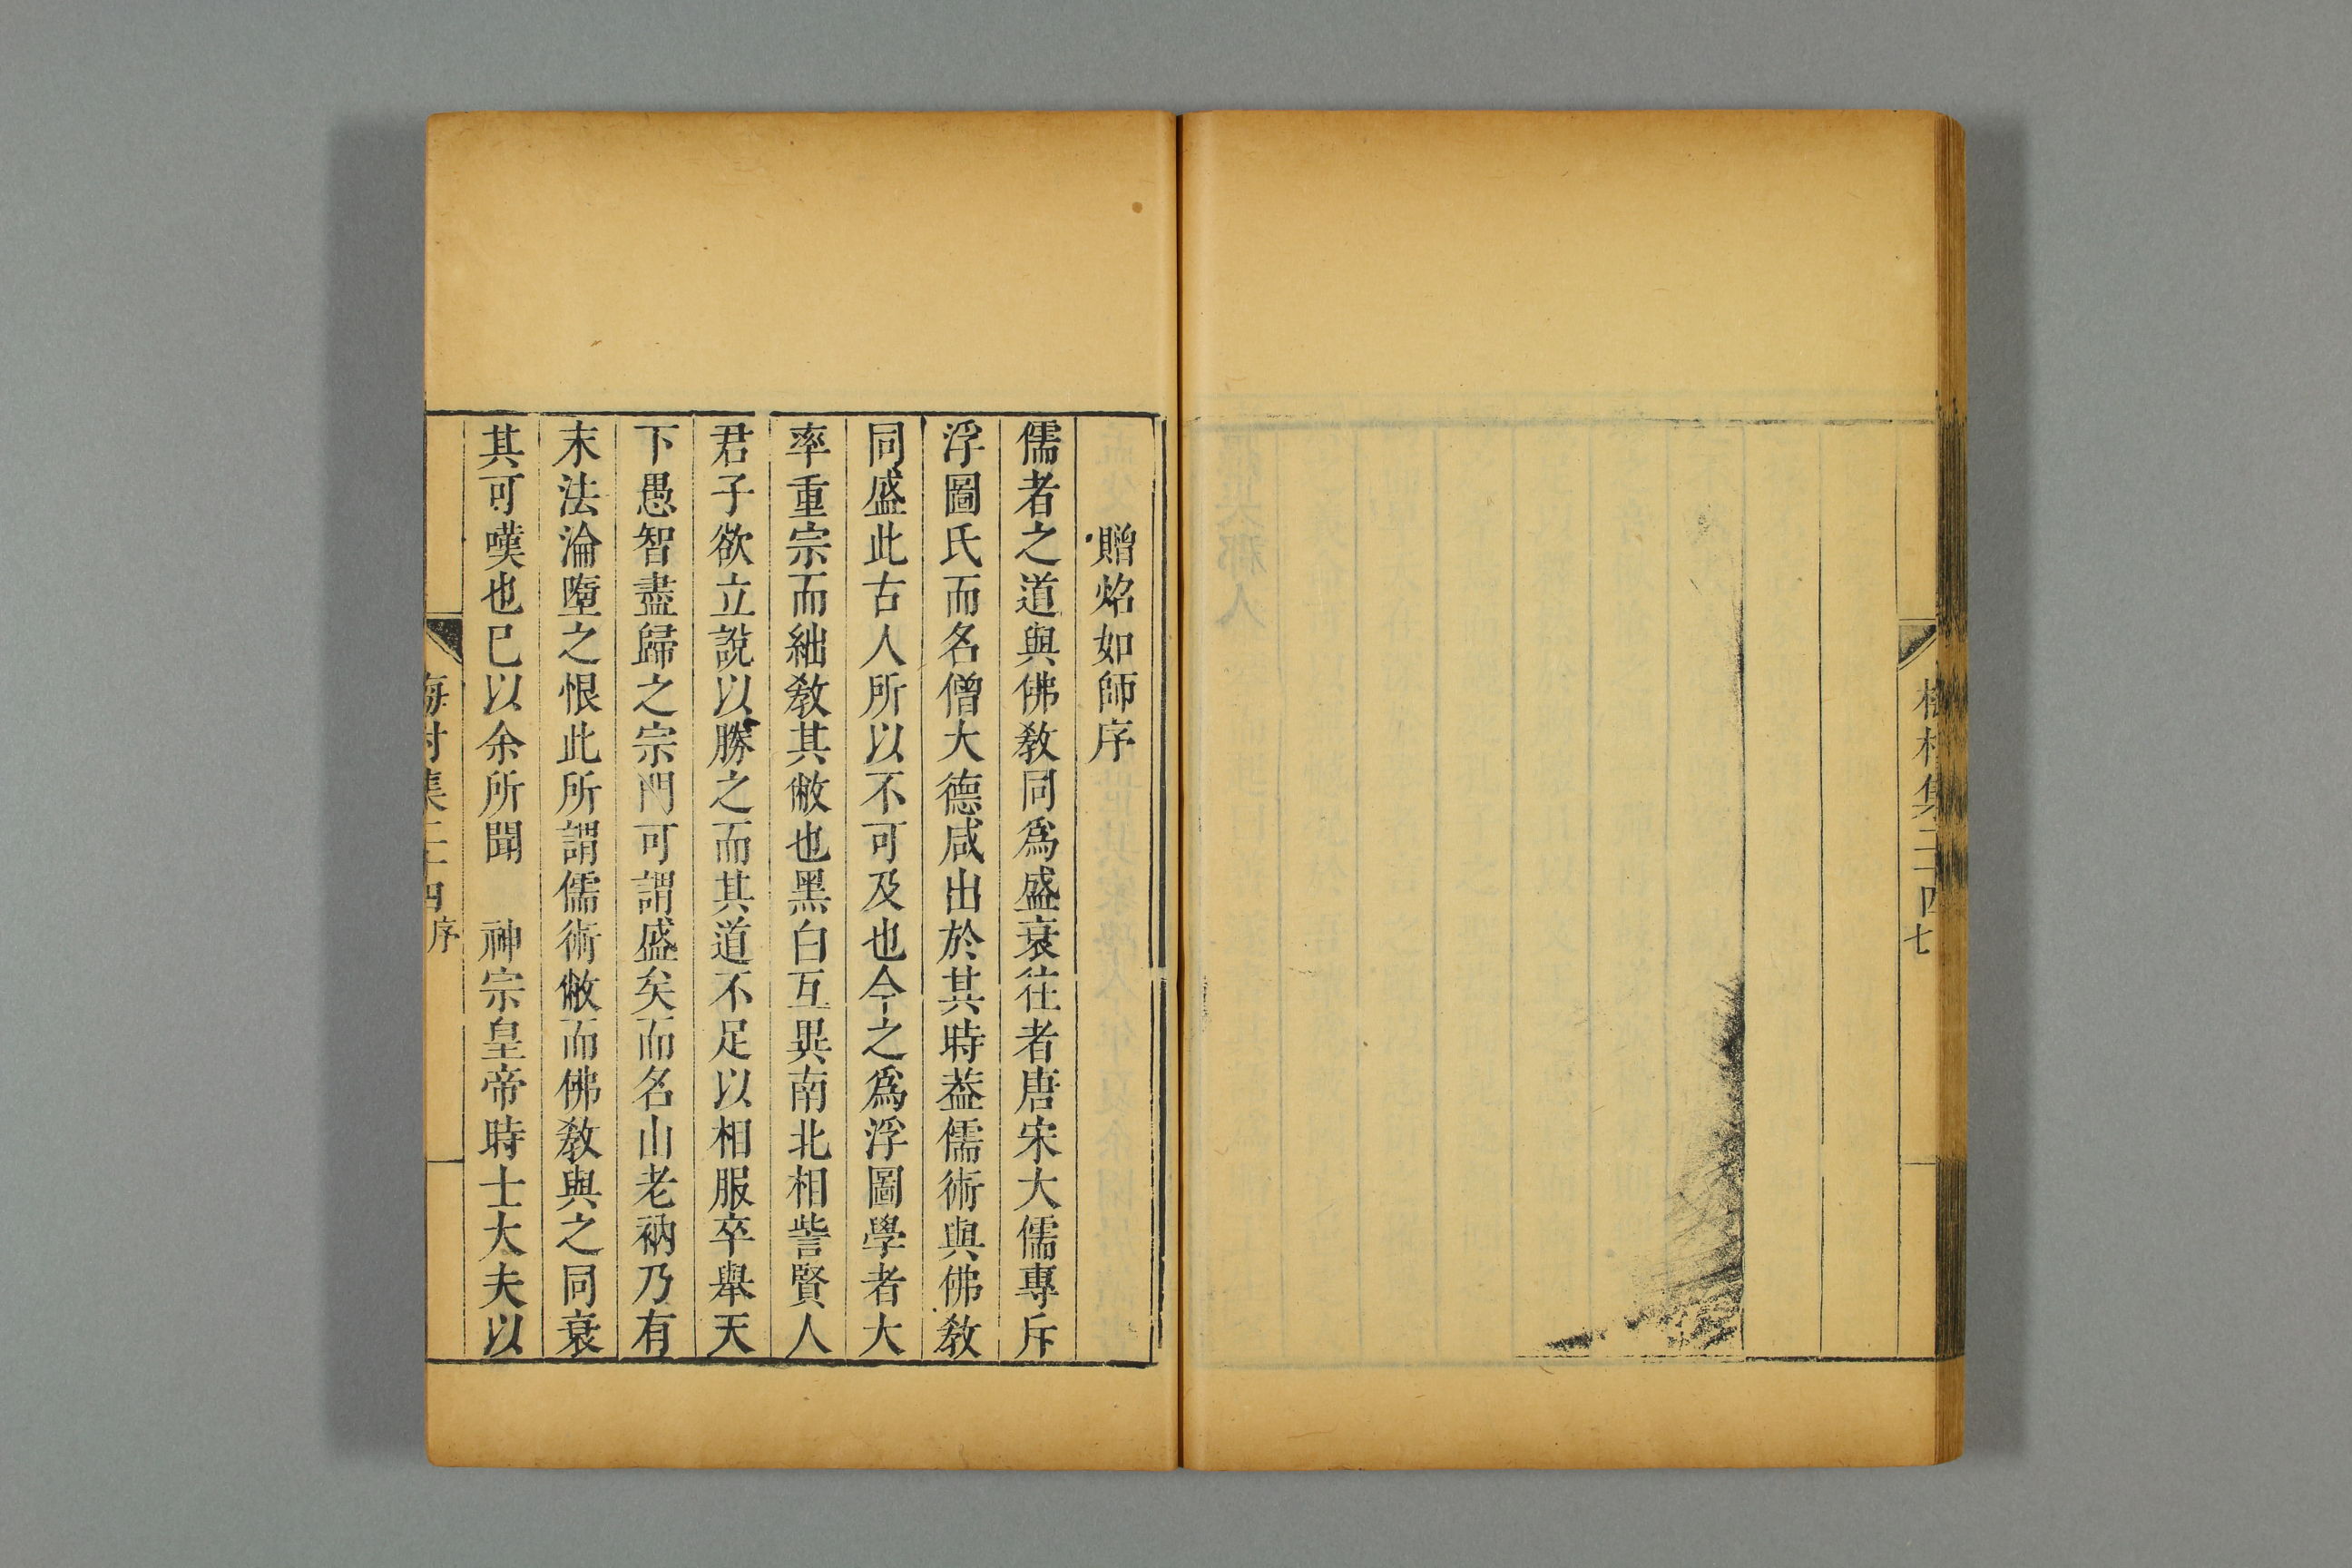 村集二十四
七
贈焰如師序
儒者之道與佛教同爲盛衰往者唐宋大儒專斥
浮圖氏而名僧大德咸出於其時葢儒術與佛教
同盛此古人所以不可及也今之爲浮圖學者大
率重宗而絀教其敝也黑白互異南北相訾賢人
君子欲立說以勝之而其道不足以相服卒舉天
下愚智盡歸之宗門可謂盛矣而名山老衲乃有
末法淪墮之恨此所謂儒術敝而佛教與之同衰
其可嘆也已以余所聞　神宗皇帝時士大夫以
梅村集二十四
序